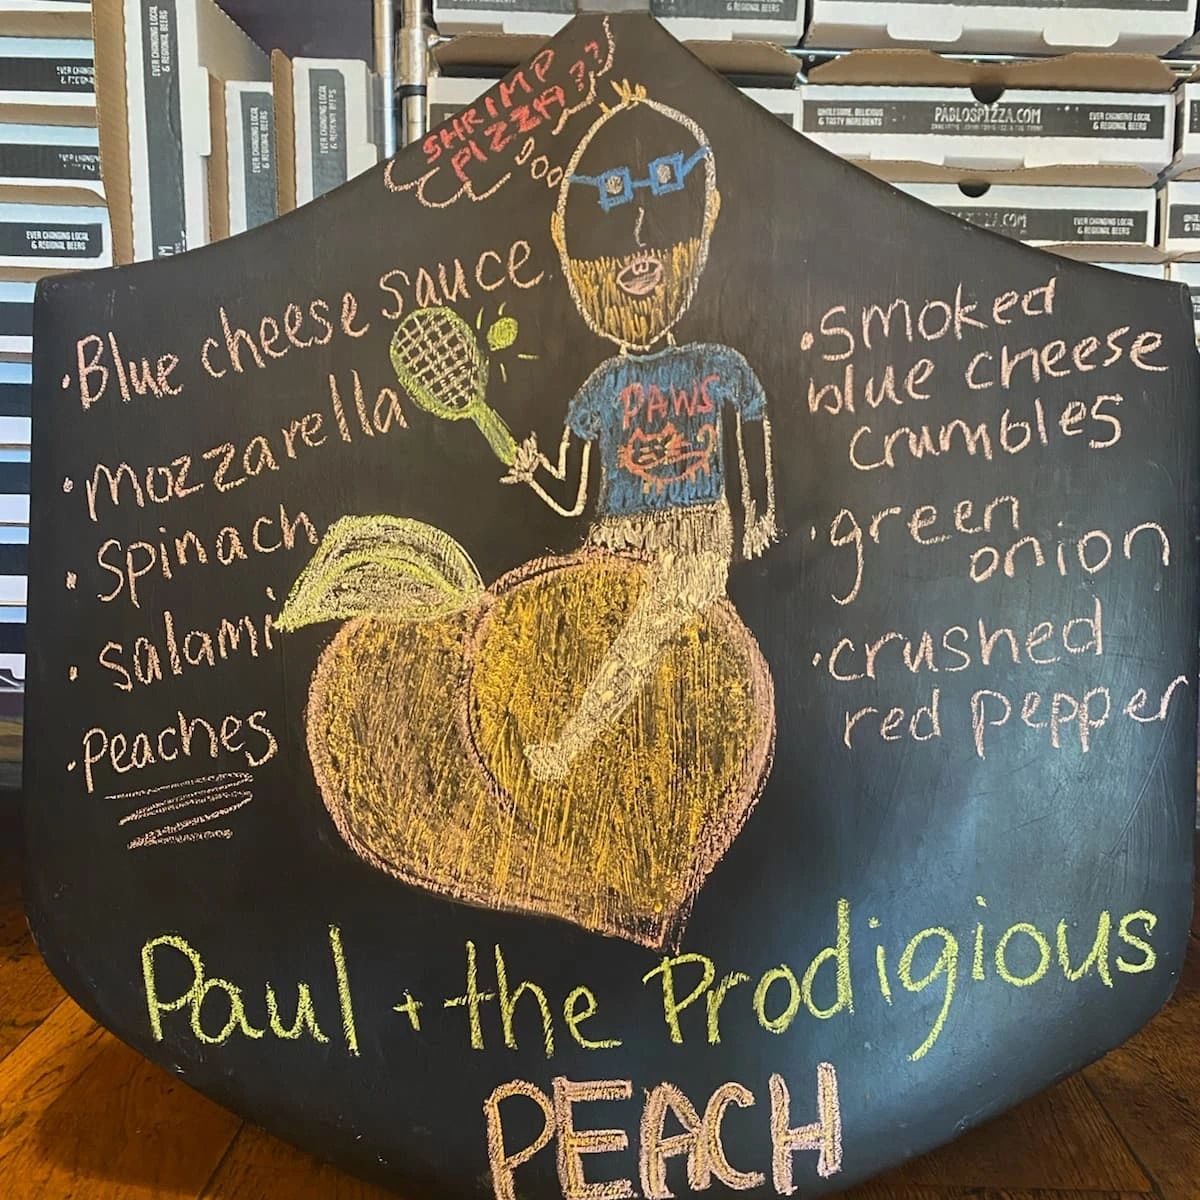 SHRIMP
PIZZA??
• Blue cheese sauce
• mozzarella
• Spinach
• salami
• peaches
PAWS
• Smoked
blue cheese
crumbles
• green
onion
• crushed
red pepper
Paul + the Prodigious
PEACH
WHOLESOME, DELICIOUS
& TASTY INGREDIENTS
PABLOSPIZZA.COM
EVER CHANGING LOCAL
& REGIONAL BEERS
EVER CHANGING LOCAL
& REGIONAL BEERS
EVER CHANGING LOCAL
& REGIONAL BEERS
EVER CHANGING LOCAL
& REGIONAL BEERS
EVER CHANGING LOCAL
& REGIONAL BEERS
EVER CHANGING LOCAL
& REGIONAL BEERS